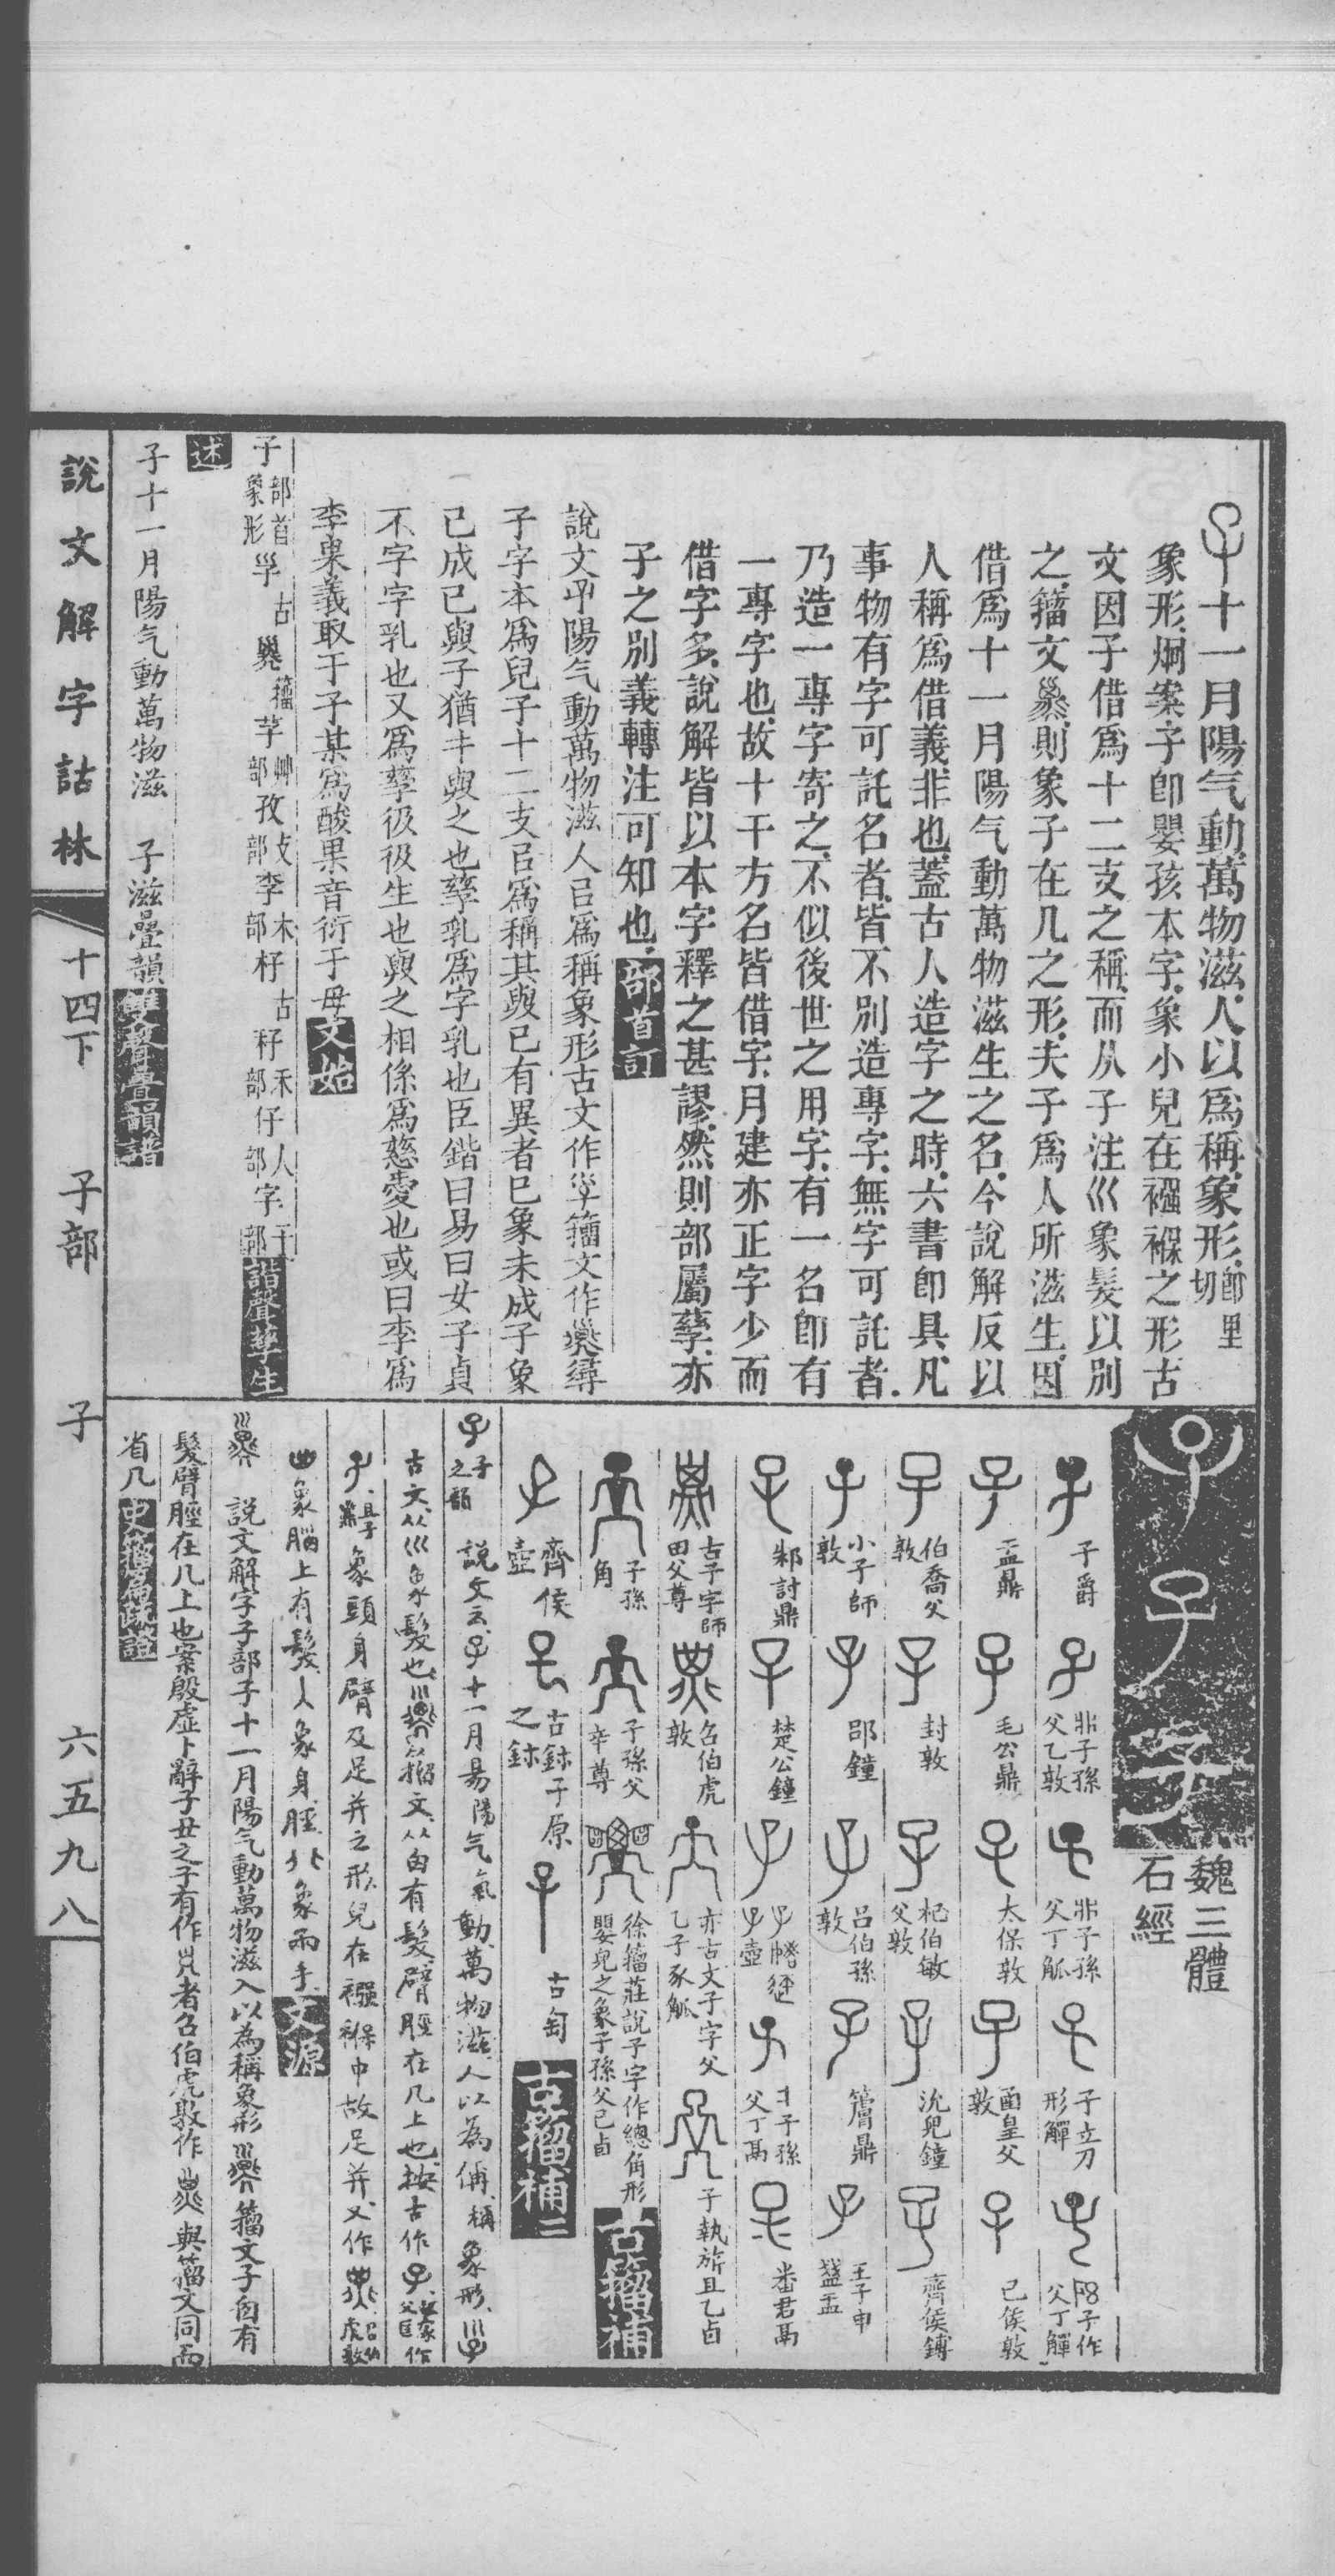 子十一月陽气動萬物滋人以爲稱象形卽里切
象形炯案子卽嬰孩本字象小兒在襁褓之形古
文因子借爲十二支之稱而从子注巛象髮以別
之籒文㜽則象子在几之形夫子爲人所滋生因
借爲十一月陽气動萬物滋生之名今說解反以
人稱爲借義非也蓋古人造字之時六書卽具凡
事物有字可託名者皆不別造專字無字可託者
乃造一專字寄之不似後世之用字有一名卽有
一專字也故十干方名皆借字月建亦正字少而
借字多說解皆以本字釋之甚謬然則部屬孳亦
子之別義轉注可知也部首訂
說文子陽气動萬物滋人㠯爲稱象形古文作㜽籒文作㜽尋
子字本爲兒子十二支㠯爲稱其與巳有異者巳象未成子象
已成已與子猶キ與之也孳乳爲字乳也臣鍇曰易曰女子貞
不字字乳也又爲孳彶彶生也與之相係爲慈愛也或曰李爲
李果義取于子某爲酸果音衍于母文始
子部首象形㜽古㜽籒芓艸部孜攴部李木部杍古秄禾部仔人部字子部諧聲孳生
述
子十一月陽气動萬物滋 子滋疊韻雙聲疊韻譜
說文解字詁林 十四下 子部 子 六五九八
子 子 子 魏三體石經
子爵 子孫父乙敦 子孫父丁觚 子立刀形觶 子作父丁觶
盂鼎 毛公鼎 太保敦 函皇父敦 己侯敦
伯喬父敦 封敦 杞伯敏父敦 沇兒鐘 齊侯鎛
小子師敦 郘鐘 呂伯孫敦 簷鼎 王子申盞盂
邾討鼎 楚公鐘 壺 子孫父丁鬲 番君鬲
古子字師田父尊 召伯虎敦 亦古文子字父乙子豕觚 子執旂且乙卣
子孫角 子孫父辛尊 徐籒莊說子字作總角形嬰兒之象子孫父己卣 古籒補
齊侯壺 古鉥子原之鉥 古匋 古籒補二
子子之韻 說文云子十一月昜陽气氣動萬物滋人以為偁稱象形㜽
古文从巛象髮也㜽籒文从囟有髮臂脛在几上也按古作子
子象頭身臂及足并之形兒在襁褓中故足并又作㜽召伯虎敦
象腦上有髮人象身脛象兩手文源
㜽 說文解字子部子十一月陽气動萬物滋入以為稱象形㜽籒文子囟有
髮臂脛在几上也案殷虛卜辭子丑之子有作者召伯虎敦作與籒文同而
省几史籒篇疏證